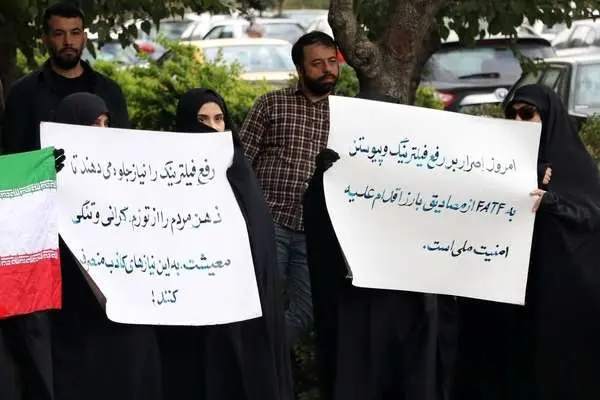 رفع فیلترینگ را نیاز جلوه می دهند تا
ذهن مردم را از تورم، گرانی و تنگی
معیشت، به این نیازهای کاذب منصرف
کنند!
امروز اصرار بر رفع فیلترینگ و پیوستن
به FATF از مصادیق بارز اقدام علیه
امنیت ملی است.